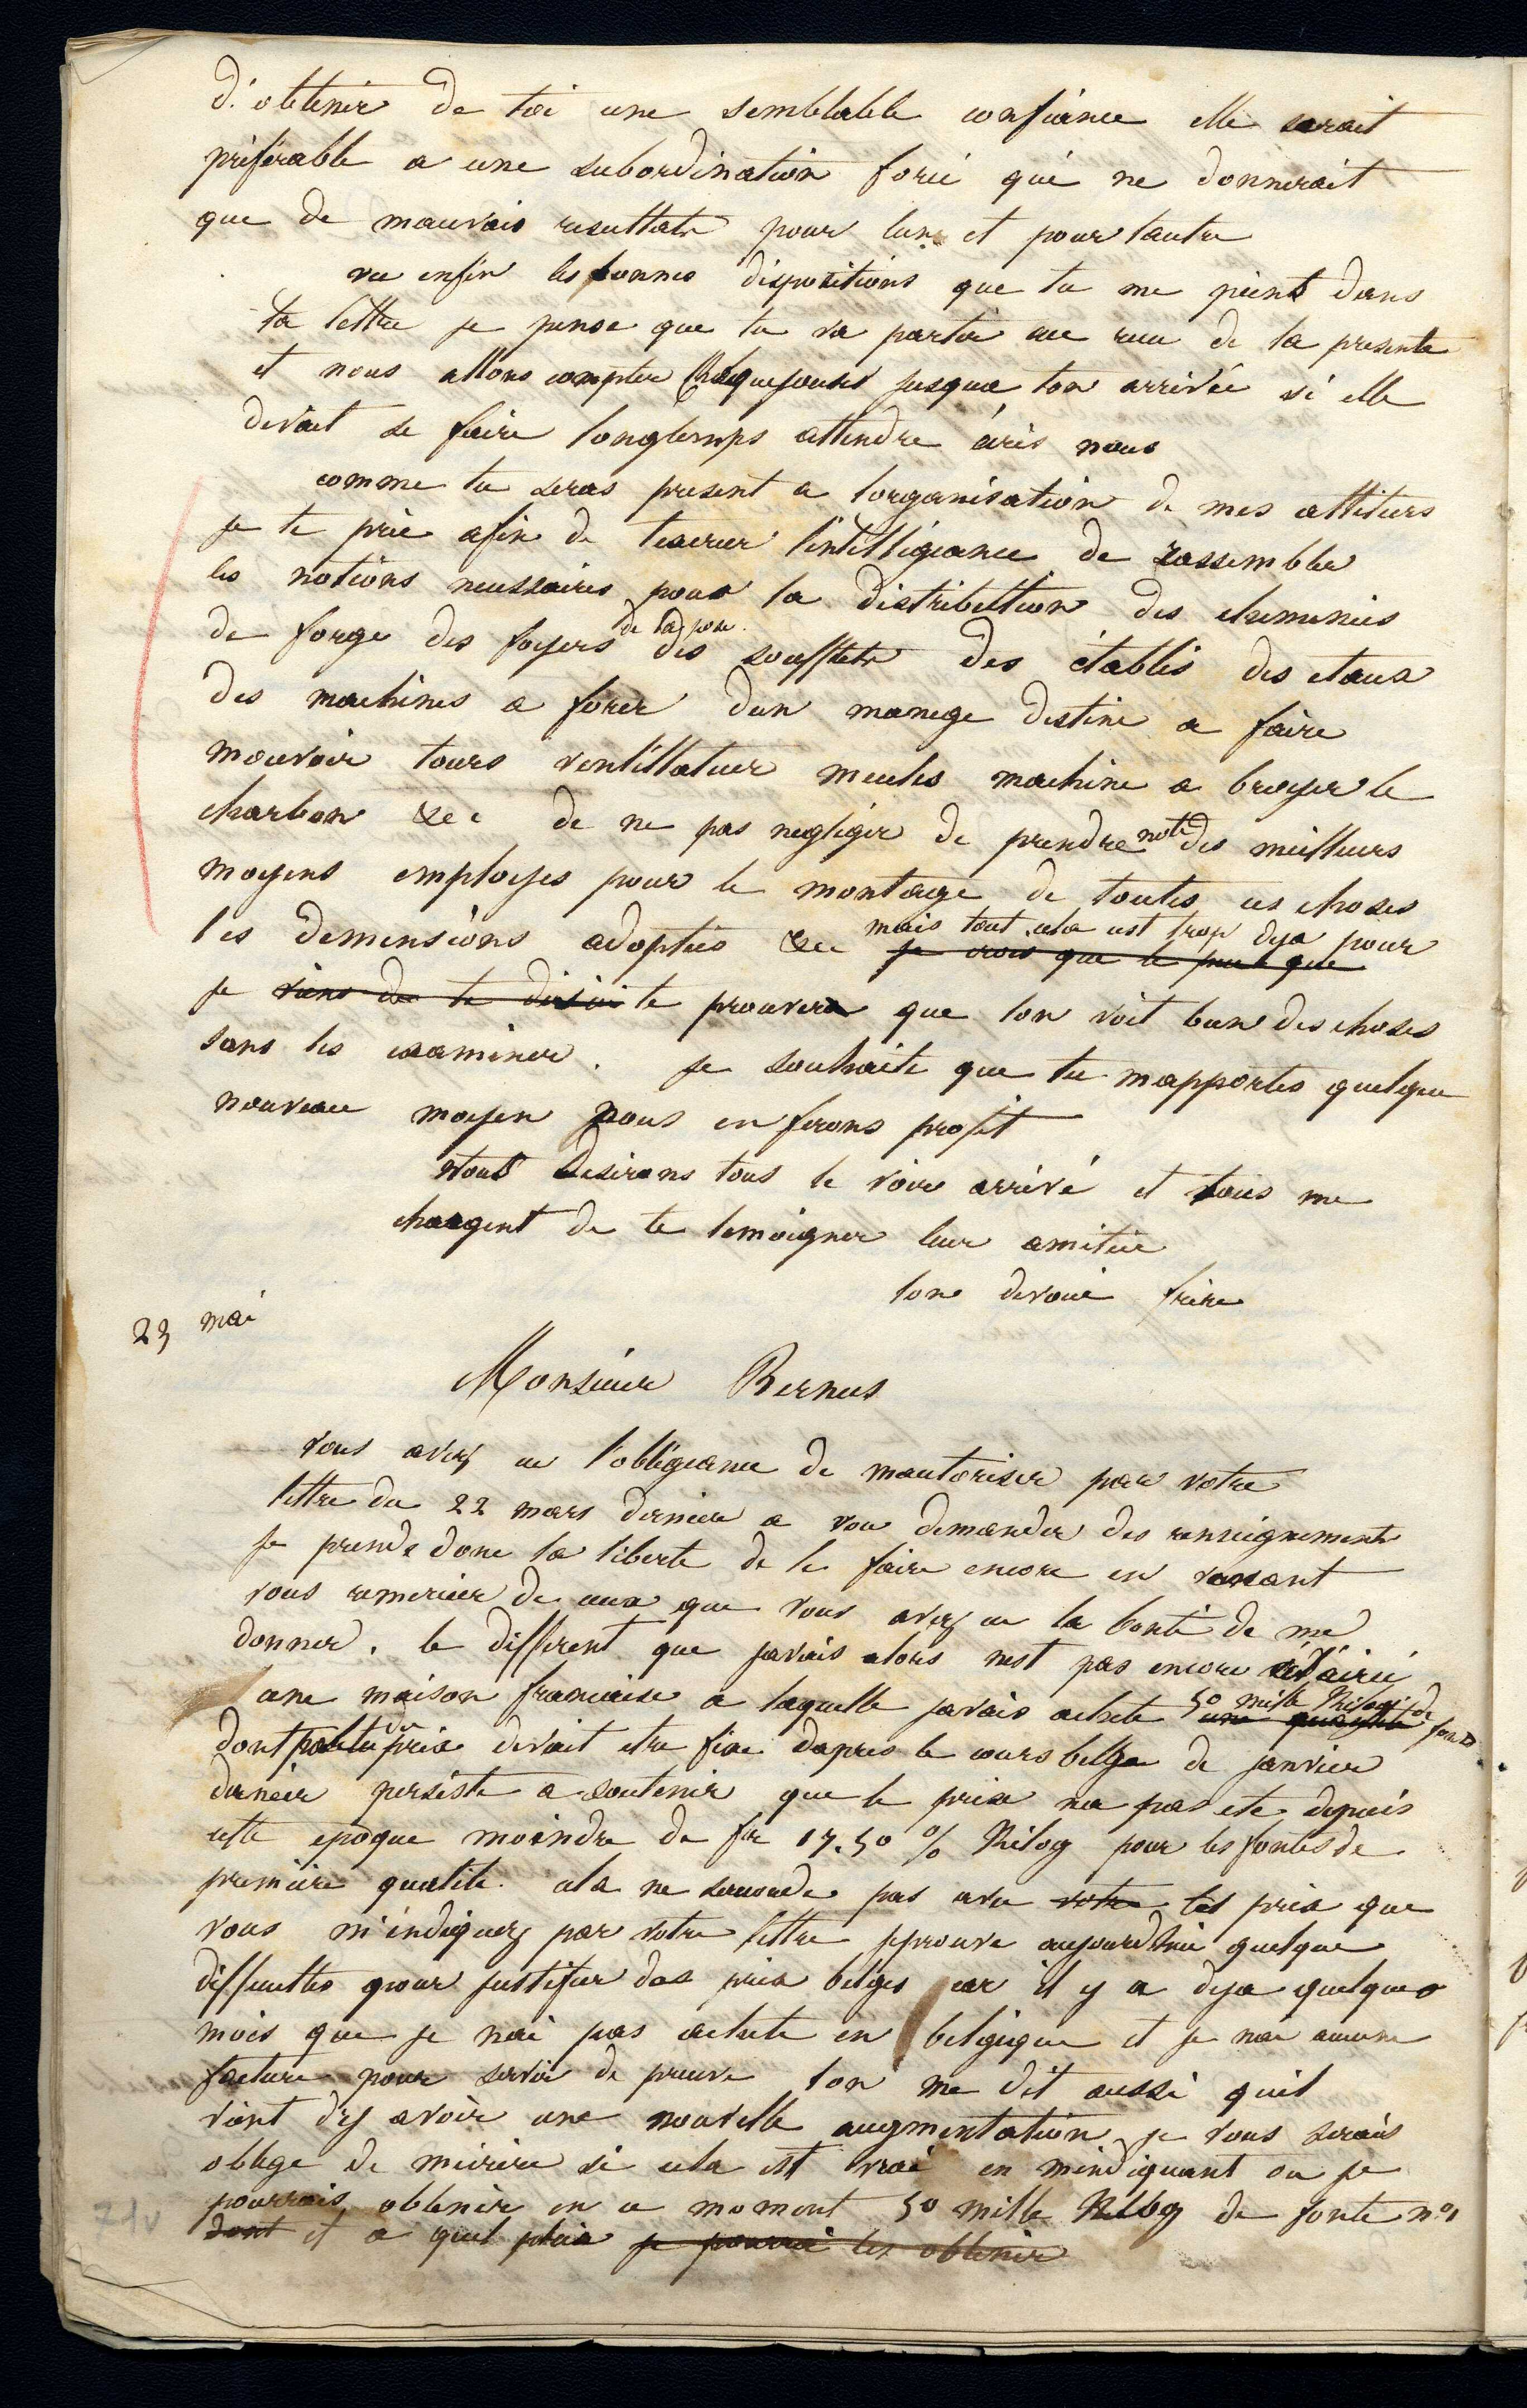 d'obtenir de toi une semblable confiance elle serait
préférable a une subordination forcé qui ne donnerait
que de mauvais resultats pour lun et pour lautre
vu enfin les bonnes dispositions que tu me peints dans
ta lettre je pense que tu va partir au recu de la presente
et nous allons compter chaque jours jusqua ton arrivée si elle
devait se faire longtemps attendre écris nous
comme tu seras present a lorganisation de mes attiliers
je te prie afin de texercer l'intilligeance de rassembler
les notions necessaires pour la distributtion des cheminées
de forge des foyers des soufflets des établis des etaux
des machines a forer dun manege destiné a faire
mouvoir tours ventillateur meules machine a broyer le
charbon &c de ne pas negliger de prendre note des meilleurs
moyens employes pour le montage de toutes ces choses
les demensions adoptées &c mais tout cela est trop deja pour
je crois que le peu que
je viens de te dire ici te prouvera que lon voit bien des choses
sans les examiner. je souhaite que tu mapportes quelque
nouveau moyen nous en ferons profit
Nous desirons tous te voir arrivé et tous me
chargent de te temoigner leur amitié
ton devoué frère
23 mai
Monsieur Bernus
vous avez eu l'obligeance de mautoriser par votre
lettre du 22 mars dernier a vou demander des renseignements
je prends donc la liberte de le faire encore en venant
vous remercier de ceux que vous avez eu la bonté de me
donner. le different que javais alors nest pas encore éclairci
une maison francaise a laquelle javais acheté 50 mille Kilogr de fonte
une quantité
dont le prix devait etre fixé dapres le cours belge de janvier
dernier persiste a soutenir que le prix na pas ete depuis
cette epoque moindre de fr 17.50 % Kilog pour les fontes de
première qualité. cela ne saccorde pas avec votre les prix que
vous m'indiquez par votre lettre jeprouve aujourdhui quelque
difficultes pour justifier des prix belges car il y a deja quelques
mois que je nai pas acheté en belgique et je nai aucune
facture pour servir de preuve lon me dit aussi quil
vient dy avoir une nouvelle augmentation je vous serais
oblige de mécrire si cela est vrai en mindiquant ou je
pourrais obtenir en ce moment 50 mille Kilog de fonte n°1
dont et a quel prix je pourrai les obtenir
71v